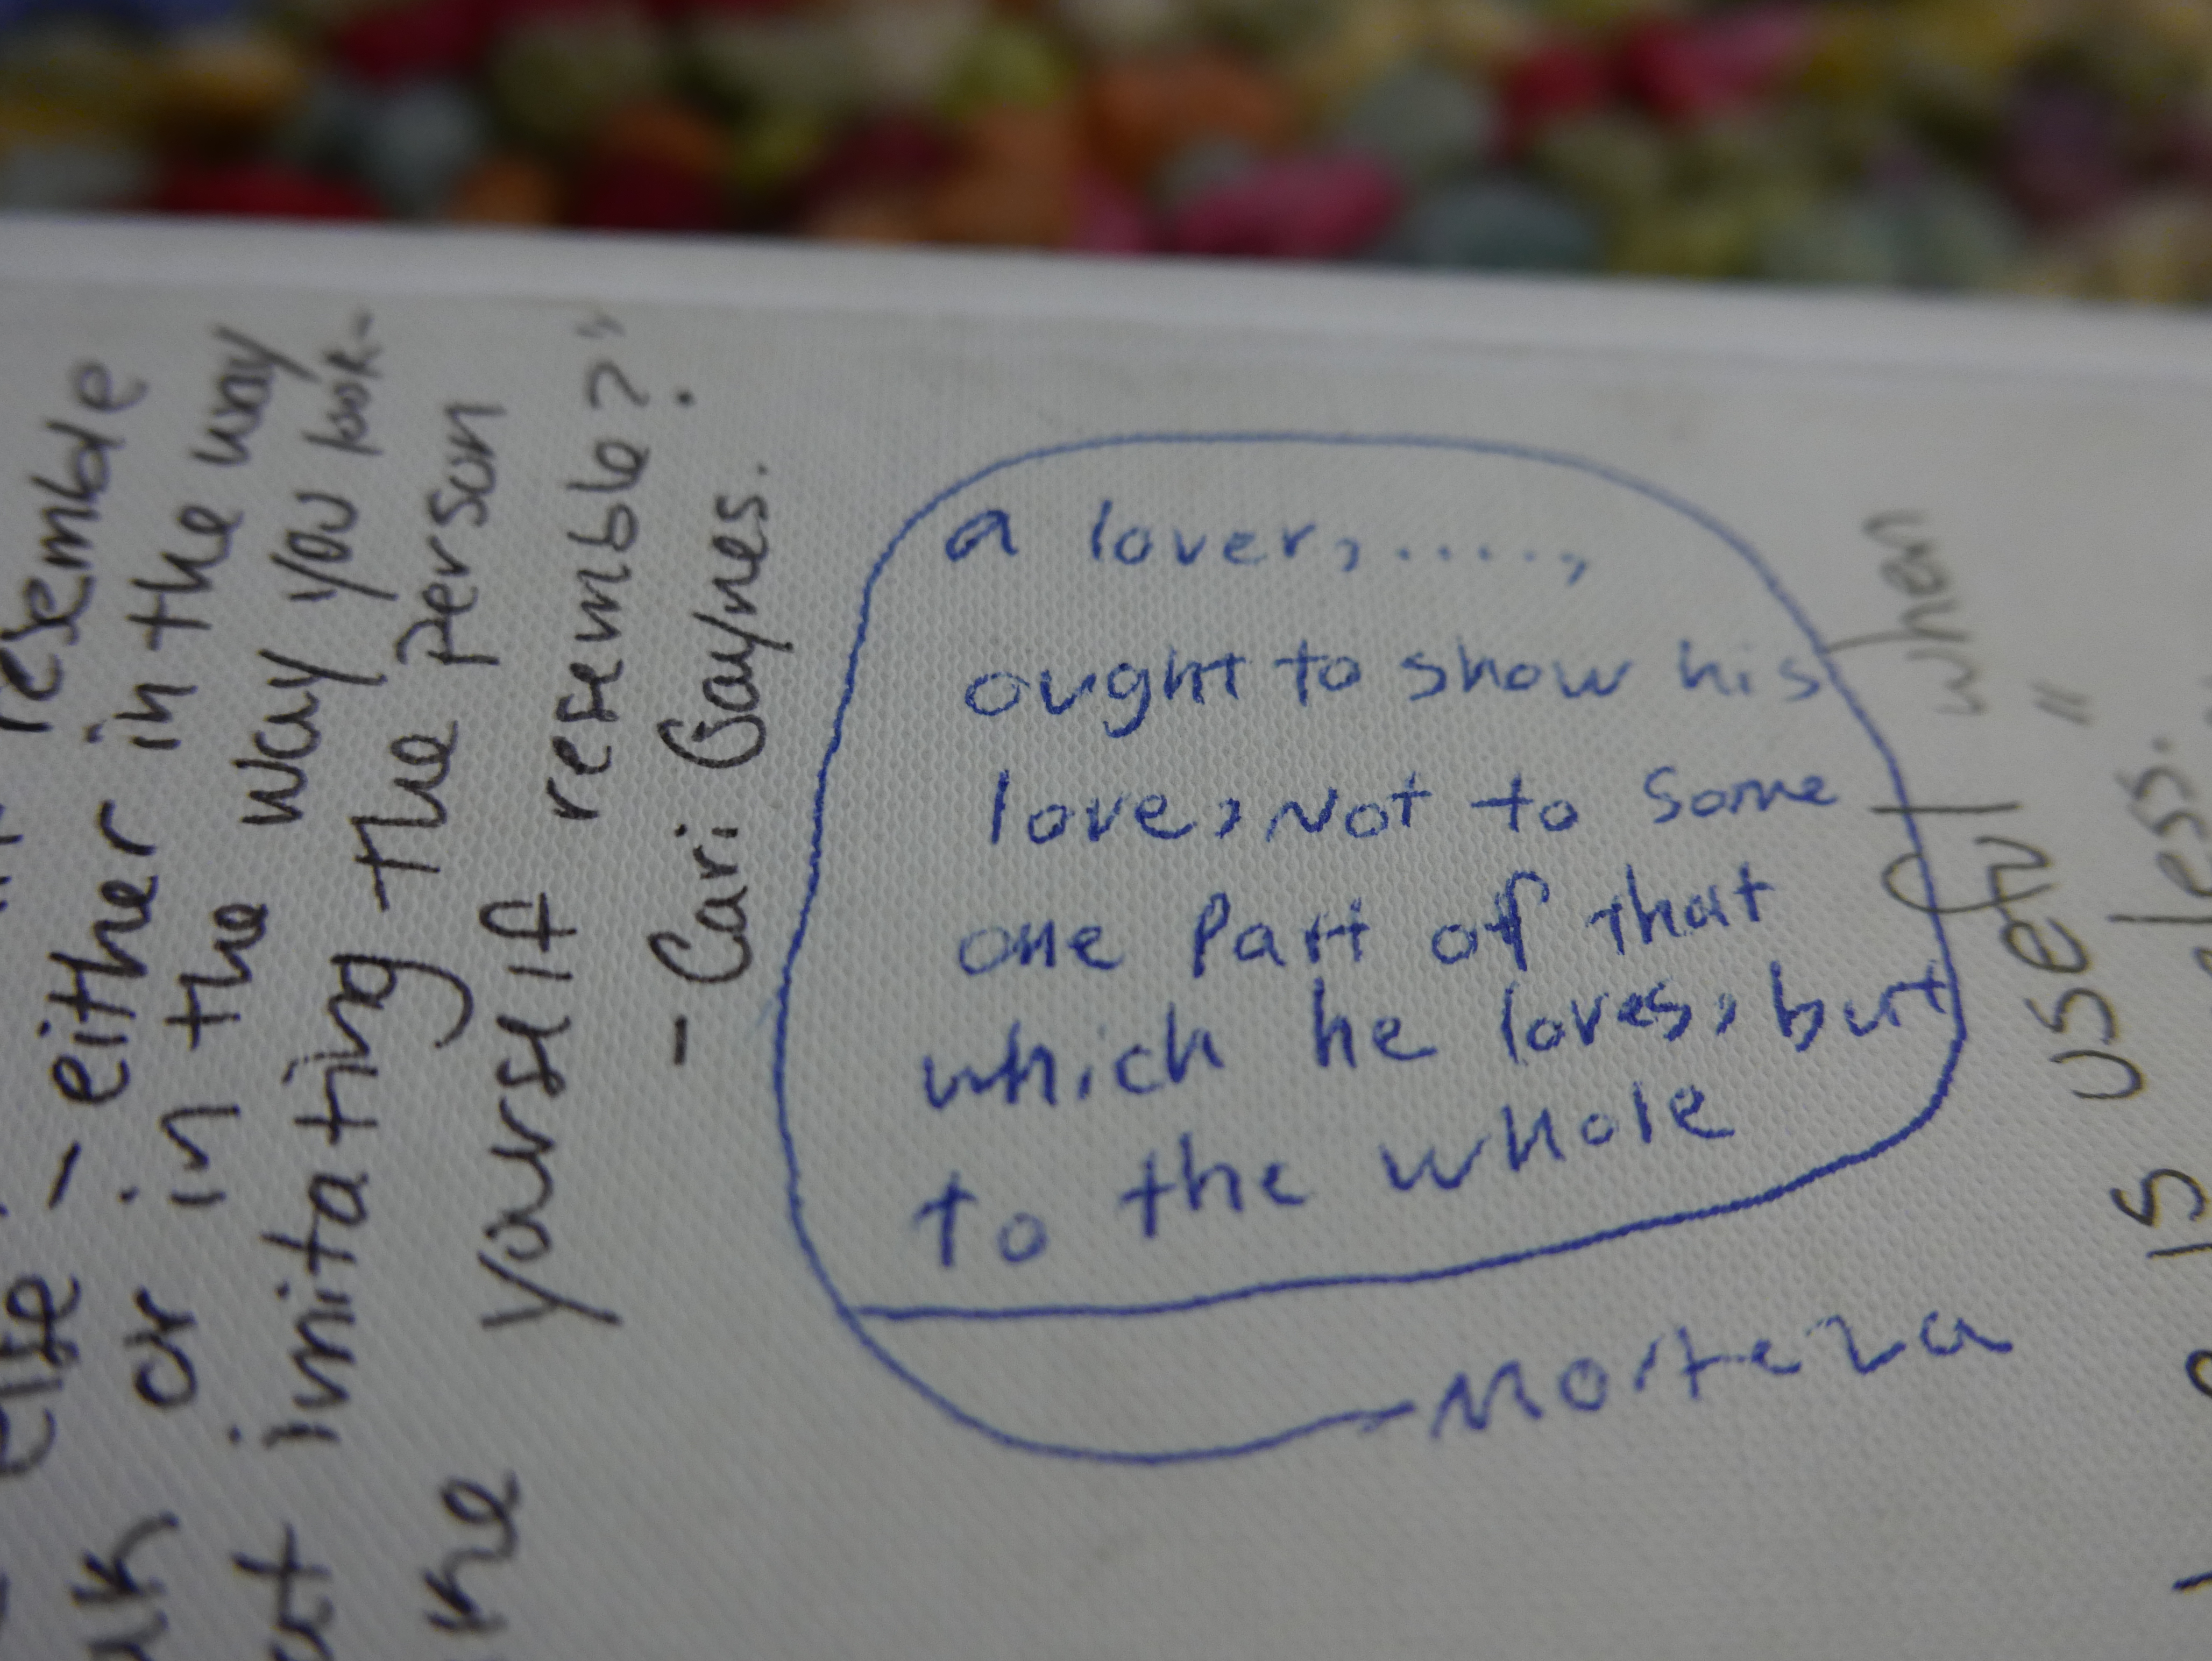 resemble
- either in the way
or in the way you wor-
imitating the person
yourself resemble?"
- Cari Gaynes.
a lover, .....,
ought to show his
love, Not to some
one Part of that
which he loves, but
to the whole
Morteza
when
useful"
is